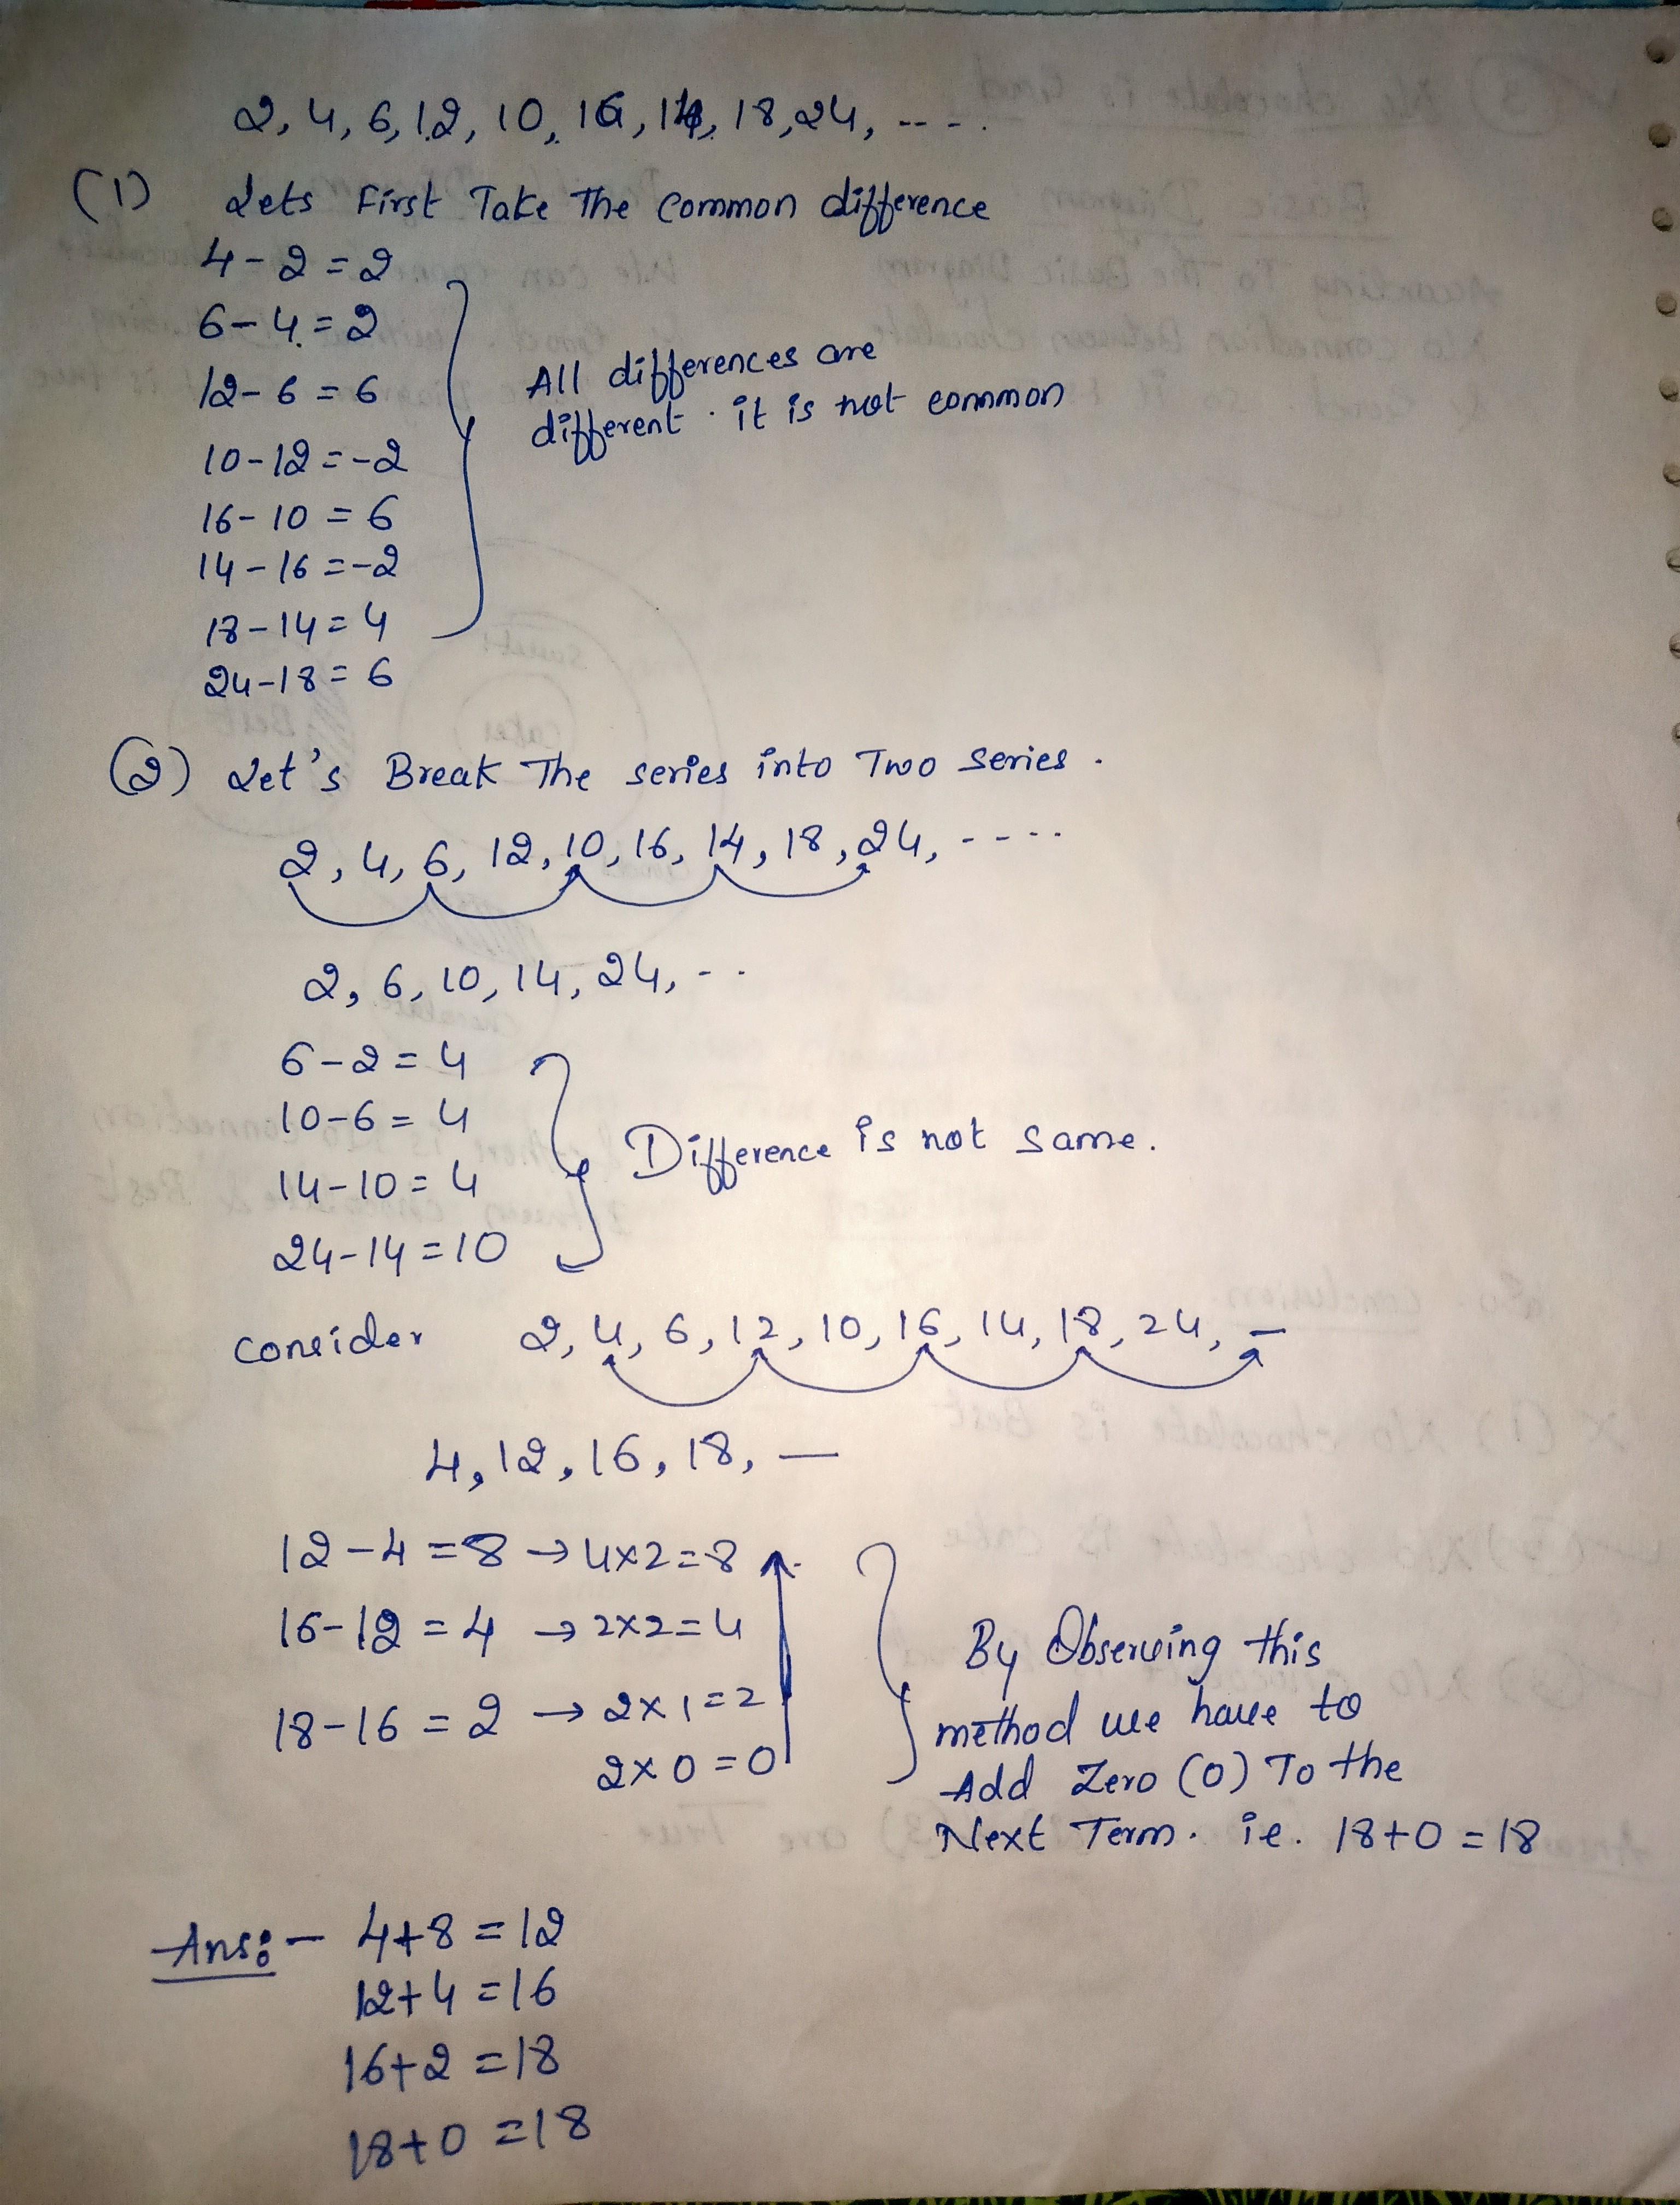 2, 4, 6, 12, 10, 16, 14, 18, 24, ----.
(1) Lets First Take The Common difference
4 - 2 = 2
6 - 4 = 2
12 - 6 = 6
10 - 12 = -2
16 - 10 = 6
14 - 16 = -2
18 - 14 = 4
24 - 18 = 6
All differences are
different. it is not common
(2) Let's Break The series into Two Series.
2, 4, 6, 12, 10, 16, 14, 18, 24, ----
2, 6, 10, 14, 24, --
6 - 2 = 4
10 - 6 = 4
14 - 10 = 4
24 - 14 = 10
Difference is not same.
consider 2, 4, 6, 12, 10, 16, 14, 18, 24, —
4, 12, 16, 18, —
12 - 4 = 8 → 4x2=8
16 - 12 = 4 → 2x2=4
18 - 16 = 2 → 2x1=2
2x0=0
By Observing this
method we have to
Add Zero (0) To the
Next Term. ie. 18+0=18
Ans:- 4+8=12
12+4=16
16+2=18
18+0=18